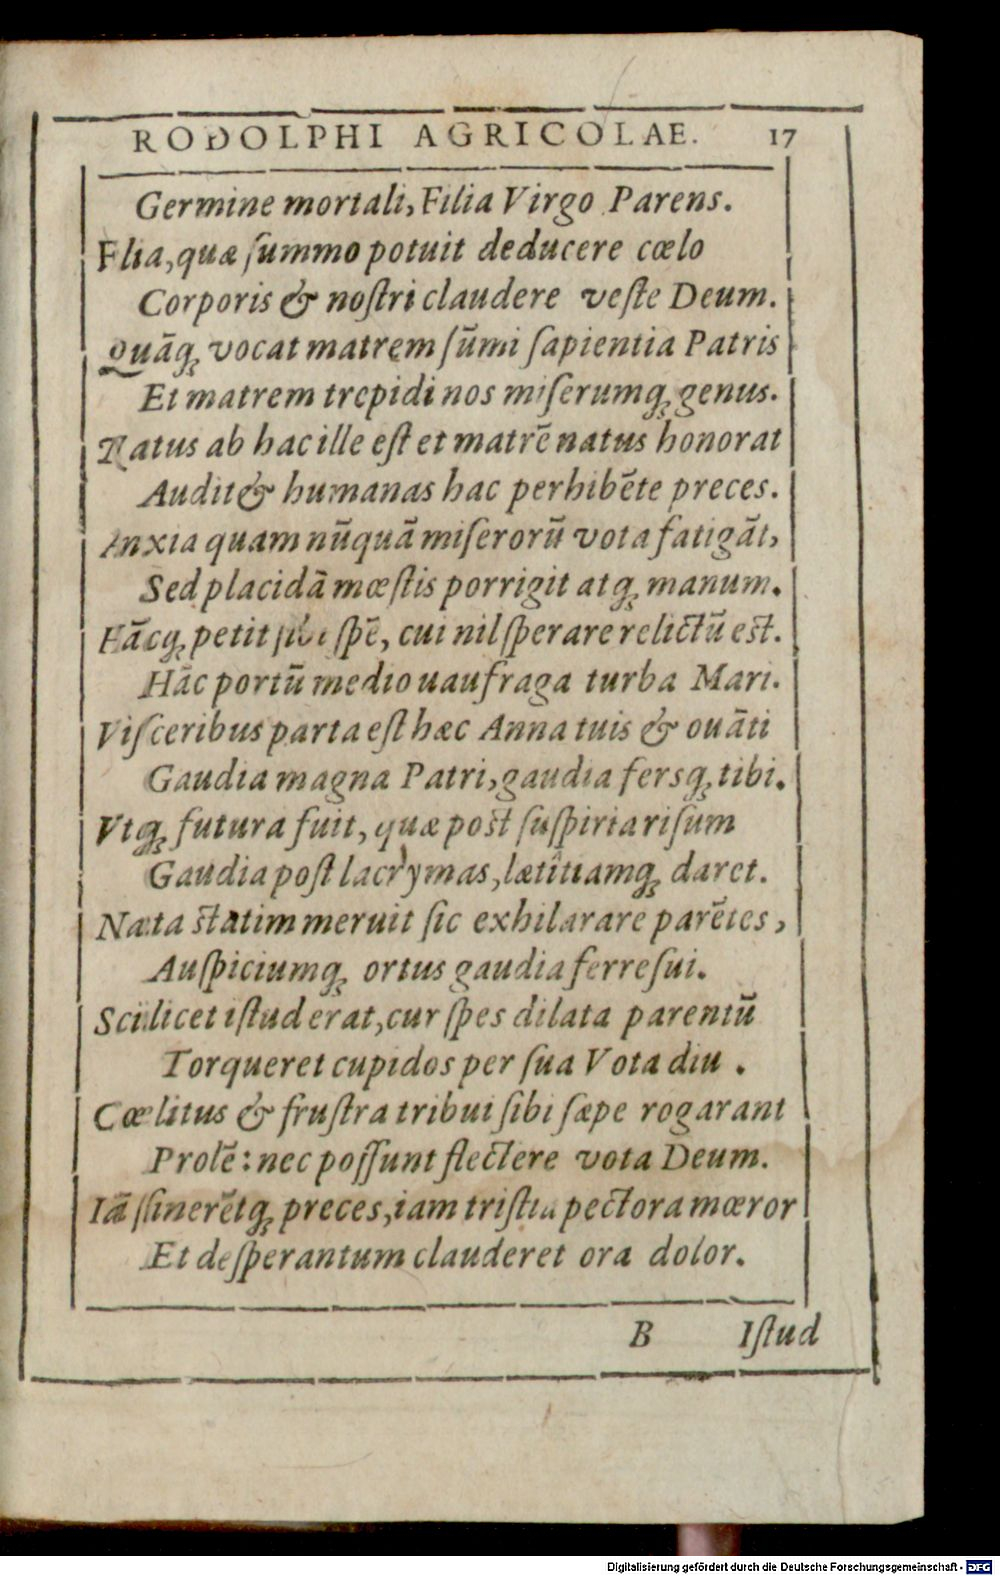 RODOLPHI AGRICOLAE. 17
Germine mortali, Filia Virgo Parens.
Flia, quæ ſummo potuit deducere cœlo
Corporis & noſtri claudere veſte Deum.
Quāq̨ vocat matrem ſūmi ſapientia Patris
Et matrem trepidi nos miſerumq̨ genus.
Natus ab hac ille eſt et matrē natus honorat
Audit & humanas hac perhibēte preces.
Anxia quam nūquā miſerorū vota fatigāt,
Sed placidā mœſtis porrigit atq̨ manum.
Hācq̨ petit ſibi ſpē, cui nil ſperare relictū eſt.
Hāc portū medio uaufraga turba Mari.
Viſceribus parta eſt hæc Anna tuis & ouāti
Gaudia magna Patri, gaudia fersq̨ tibi.
Vtq̨ futura fuit, quæ poſt ſuſpiria riſum
Gaudia poſt lacrymas, lætitiamq̨ daret.
Nata ſtatim meruit ſic exhilarare parētes,
Auſpiciumq̨ ortus gaudia ferre ſui.
Scilicet iſtud erat, cur ſpes dilata parentū
Torqueret cupidos per ſua Vota diu.
Cœlitus & fruſtra tribui ſibi ſæpe rogarant
Prolē: nec poſſunt flectere vota Deum.
Iā ſſinerētq̨ preces, iam triſtia pectora mœror
Et deſperantum clauderet ora dolor.
B Iſtud
Digitalisierung gefördert durch die Deutsche Forschungsgemeinschaft - DFG